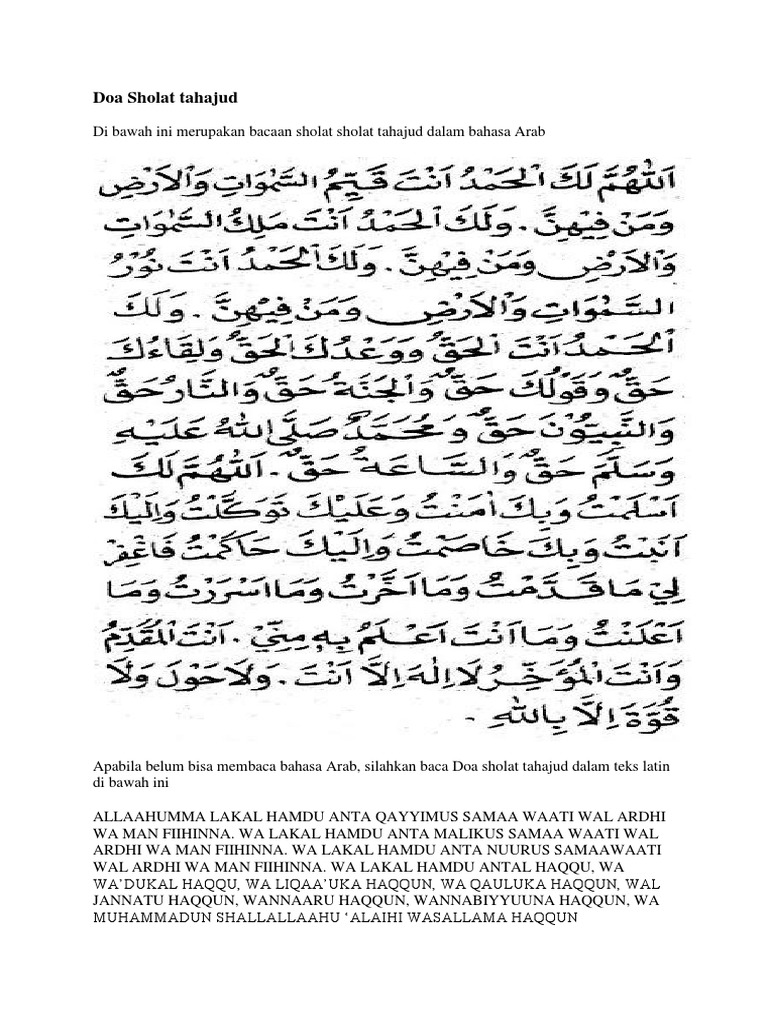 Doa Sholat tahajud
Di bawah ini merupakan bacaan sholat sholat tahajud dalam bahasa Arab
اَللّٰهُمَّ لَكَ الْحَمْدُ اَنْتَ قَيِّمُ السَّمٰوَاتِ وَالْاَرْضِ
وَمَنْ فِيْهِنَّ. وَلَكَ الْحَمْدُ اَنْتَ مَلِكُ السَّمٰوَاتِ
وَالْاَرْضِ وَمَنْ فِيْهِنَّ. وَلَكَ الْحَمْدُ اَنْتَ نُوْرُ
السَّمٰوَاتِ وَالْاَرْضِ وَمَنْ فِيْهِنَّ. وَلَكَ
الْحَمْدُ اَنْتَ الْحَقُّ وَوَعْدُكَ الْحَقُّ وَلِقَاءُكَ
حَقٌّ وَقَوْلُكَ حَقٌّ وَالْجَنَّةُ حَقٌّ وَالنَّارُ حَقٌّ
وَالنَّبِيُّوْنَ حَقٌّ وَمُحَمَّدٌ صَلَّى اللّٰهُ عَلَيْهِ
وَسَلَّمَ حَقٌّ وَالسَّاعَةُ حَقٌّ. اَللّٰهُمَّ لَكَ
اَسْلَمْتُ وَبِكَ اٰمَنْتُ وَعَلَيْكَ تَوَكَّلْتُ وَاِلَيْكَ
اَنَبْتُ وَبِكَ خَاصَمْتُ وَاِلَيْكَ حَاكَمْتُ فَاغْفِرْ
لِيْ مَا قَدَّمْتُ وَمَا اَخَّرْتُ وَمَا اَسْرَرْتُ وَمَا
اَعْلَنْتُ وَمَا اَنْتَ اَعْلَمُ بِهِ مِنِّيْ. اَنْتَ الْمُقَدِّمُ
وَاَنْتَ الْمُؤَخِّرُ لَا اِلٰهَ اِلَّا اَنْتَ. وَلَا حَوْلَ وَلَا
قُوَّةَ اِلَّا بِاللّٰهِ.
Apabila belum bisa membaca bahasa Arab, silahkan baca Doa sholat tahajud dalam teks latin
di bawah ini
ALLAAHUMMA LAKAL HAMDU ANTA QAYYIMUS SAMAA WAATI WAL ARDHI
WA MAN FIIHINNA. WA LAKAL HAMDU ANTA MALIKUS SAMAA WAATI WAL
ARDHI WA MAN FIIHINNA. WA LAKAL HAMDU ANTA NUURUS SAMAAWAATI
WAL ARDHI WA MAN FIIHINNA. WA LAKAL HAMDU ANTAL HAQQU, WA
WA’DUKAL HAQQU, WA LIQAA’UKA HAQQUN, WA QAULUKA HAQQUN, WAL
JANNATU HAQQUN, WANNAARU HAQQUN, WANNABIYYUUNA HAQQUN, WA
MUHAMMADUN SHALLALLAAHU ‘ALAIHI WASALLAMA HAQQUN